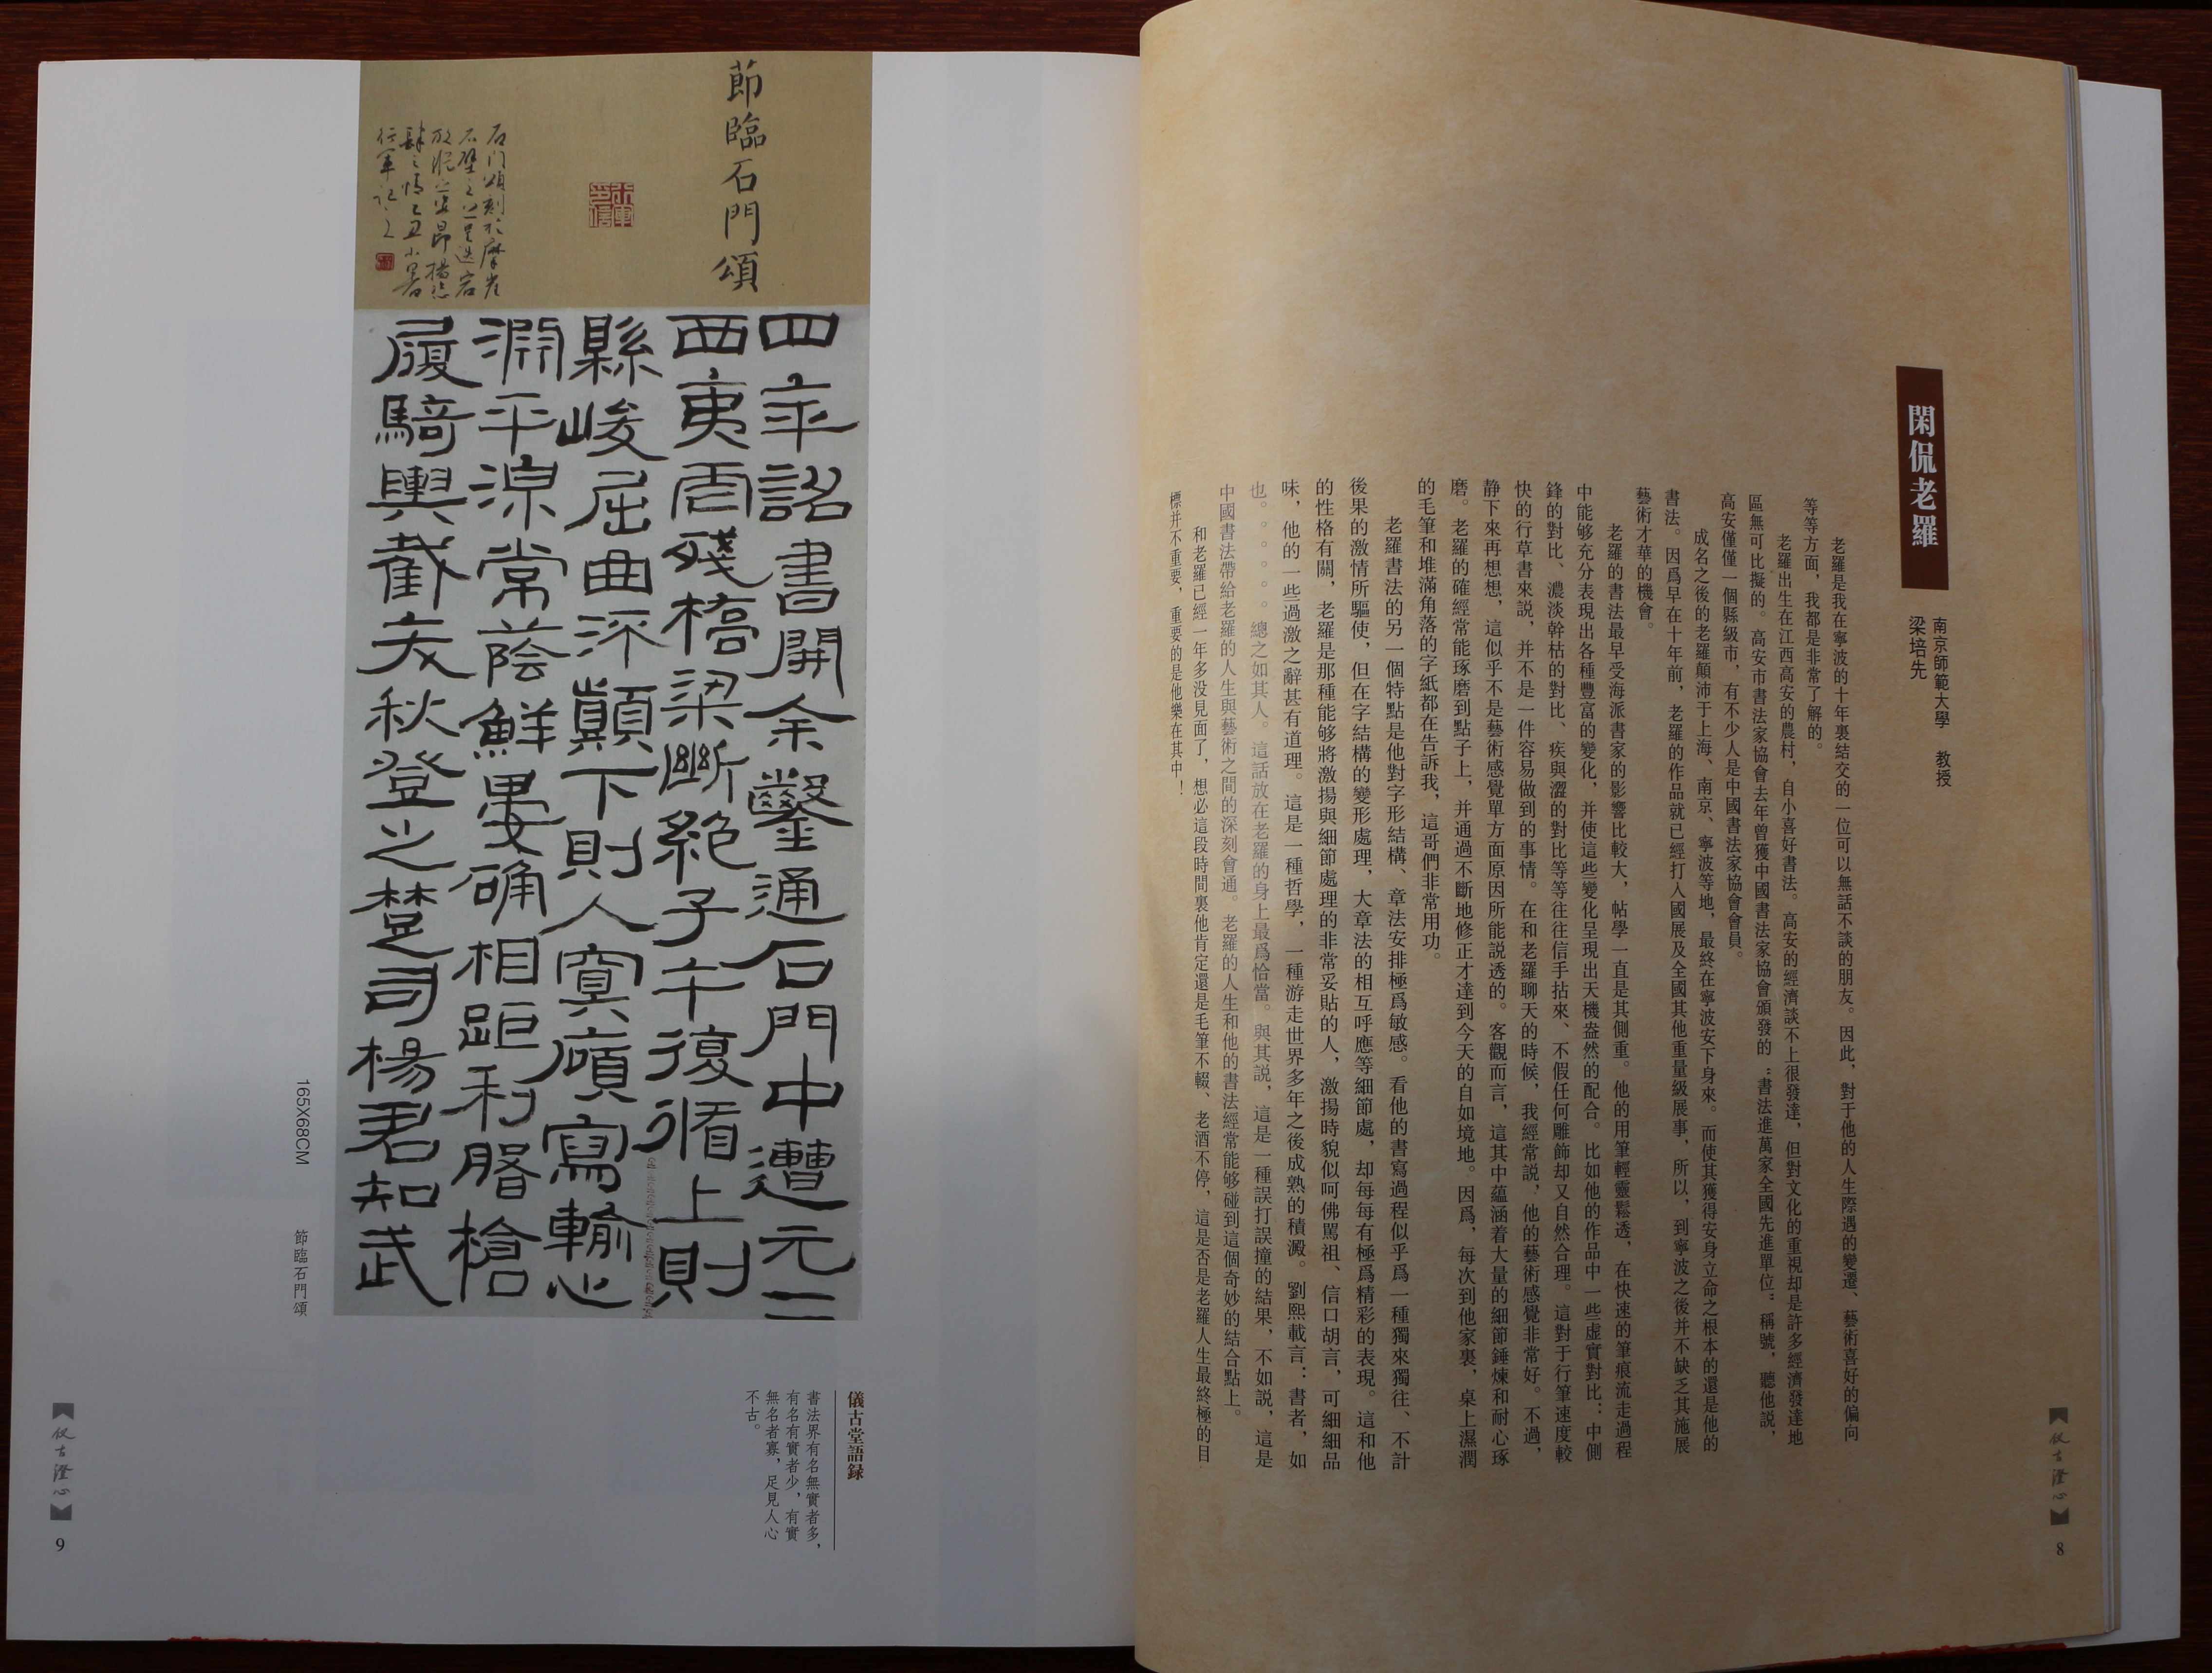 閑侃老羅
南京師範大學 教授
梁培先
老羅是我在寧波的十年裏結交的一位可以無話不談的朋友。因此，對于他的人生際遇的變遷、藝術喜好的偏向
等等方面，我都是非常了解的。
老羅出生在江西高安的農村，自小喜好書法。高安的經濟談不上很發達，但對文化的重視却是許多經濟發達地
區無可比擬的。高安市書法家協會去年曾獲中國書法家協會頒發的“書法進萬家全國先進單位”稱號，聽他説，
高安僅僅一個縣級市，有不少人是中國書法家協會會員。
成名之後的老羅顛沛于上海、南京、寧波等地，最終在寧波安下身來。而使其獲得安身立命之根本的還是他的
書法。因爲早在十年前，老羅的作品就已經打入國展及全國其他重量級展事，所以，到寧波之後并不缺乏其施展
藝術才華的機會。
老羅的書法最早受海派書家的影響比較大，帖學一直是其側重。他的用筆輕靈鬆透，在快速的筆痕流走過程
中能够充分表現出各種豐富的變化，并使這些變化呈現出天機盎然的配合。比如他的作品中一些虛實對比：中側
鋒的對比、濃淡幹枯的對比、疾與澀的對比等等往往信手拈來、不假任何雕飾却又自然合理。這對于行筆速度較
快的行草書來説，并不是一件容易做到的事情。在和老羅聊天的時候，我經常説，他的藝術感覺非常好。不過，
静下來再想想，這似乎不是藝術感覺單方面原因所能説透的。客觀而言，這其中蘊涵着大量的細節錘煉和耐心琢
磨。老羅的確經常能琢磨到點子上，并通過不斷地修正才達到今天的自如境地。因爲，每次到他家裏，桌上濕潤
的毛筆和堆滿角落的字紙都在告訴我，這哥們非常用功。
老羅書法的另一個特點是他對字形結構、章法安排極爲敏感。看他的書寫過程似乎爲一種獨來獨往、不計
後果的激情所驅使，但在字結構的變形處理，大章法的相互呼應等細節處，却每每有極爲精彩的表現。這和他
的性格有關，老羅是那種能够將激揚與細節處理的非常妥貼的人，激揚時貌似呵佛駡祖、信口胡言，可細細品
味，他的一些過激之辭甚有道理。這是一種哲學，一種游走世界多年之後成熟的積澱。劉熙載言：書者，如
也。。。。。。總之如其人。這話放在老羅的身上最爲恰當。與其説，這是一種誤打誤撞的結果，不如説，這是
中國書法帶給老羅的人生與藝術之間的深刻會通。老羅的人生和他的書法經常能够碰到這個奇妙的結合點上。
和老羅已經一年多没見面了，想必這段時間裏他肯定還是毛筆不輟、老酒不停，這是否是老羅人生最終極的目
標并不重要，重要的是他樂在其中！
8
節臨石門頌
石门頌刻於摩崖
四年詔書開余鑿通石門中遭元二
西夷虐殘橋梁斷絶子午復循上則
縣峻屈曲流顛下則人冥廎寫輸心
淵平凉常蔭鮮晏确相距利磨槍
履騎輿截失秋登之楚司楊君知武
165X68CM 節臨石門頌
儀古堂語録
書法界有名無實者多，
有名有實者少，有實
無名者寡，足見人心
不古。
仅古澄心
9